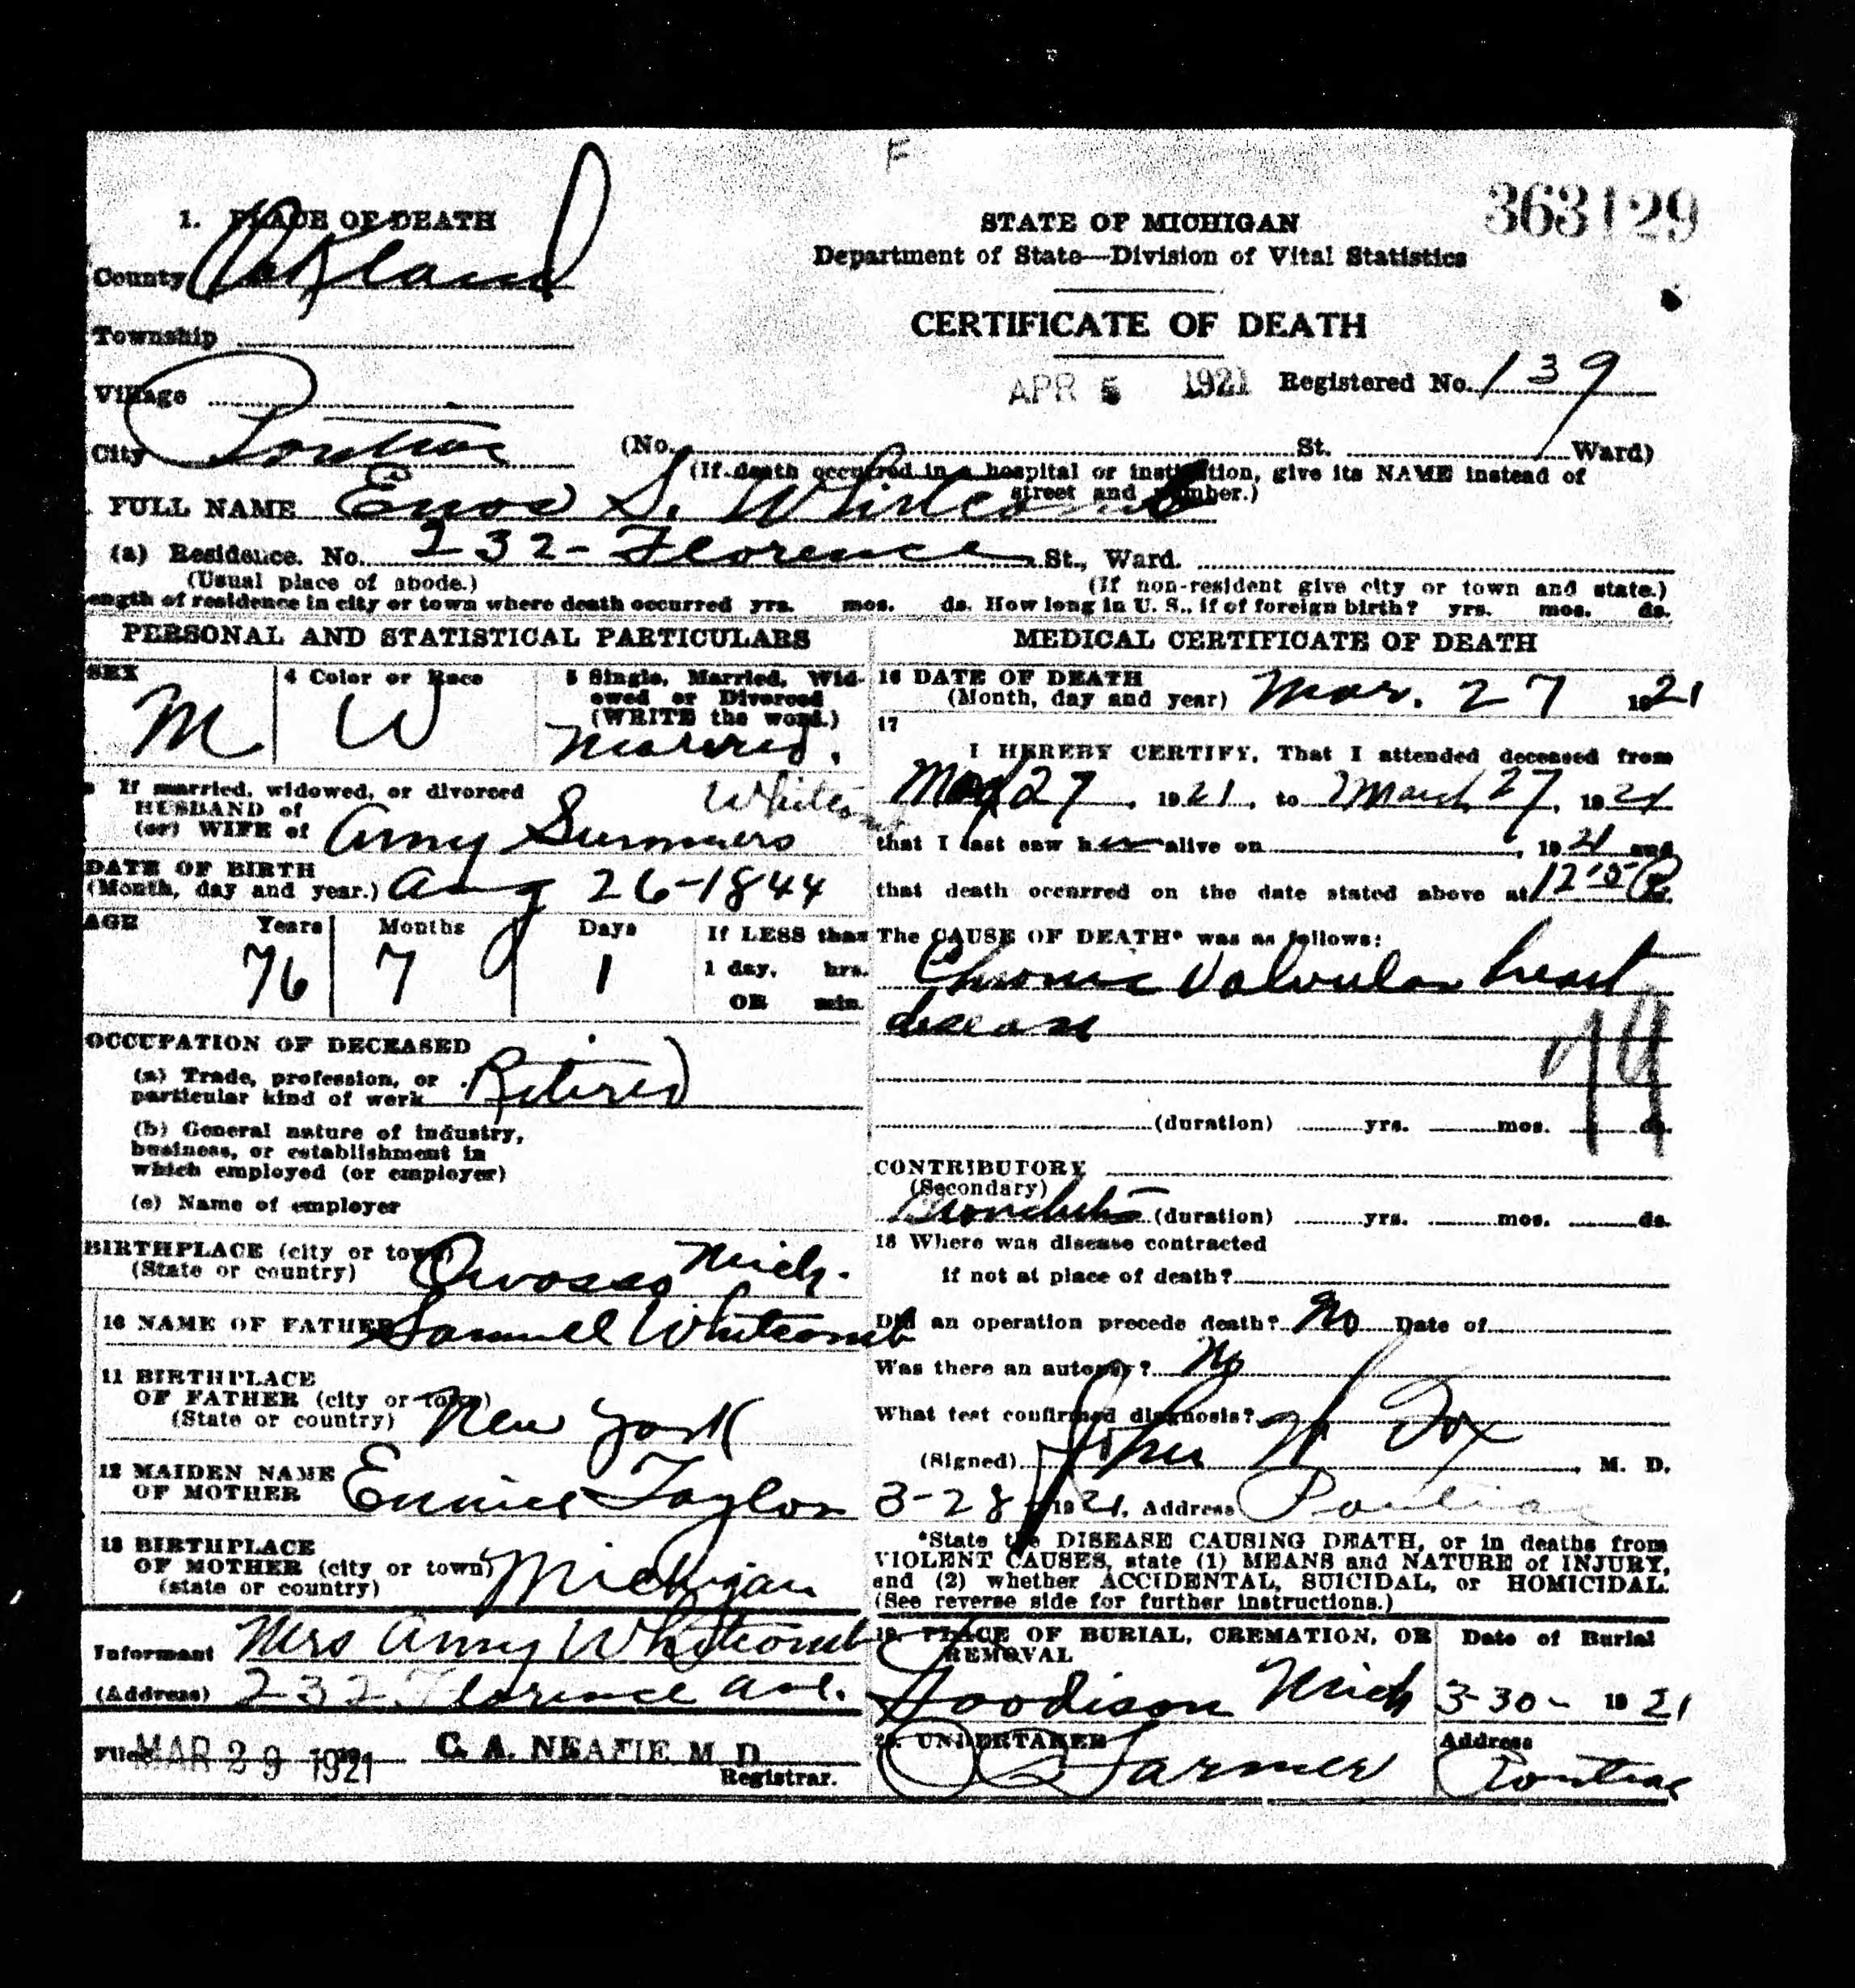 F
363129
1. PLACE OF DEATH
County Oakland
Township
Village
City Pontiac
STATE OF MICHIGAN
Department of State—Division of Vital Statistics
CERTIFICATE OF DEATH
APR 5 1921 Registered No. 139
(No. St. Ward)
(If death occurred in a hospital or institution, give its NAME instead of street and number.)
FULL NAME Enos S. Whitcomb
(a) Residence. No. 232- Florence St., Ward.
(Usual place of abode.) (If non-resident give city or town and state.)
ength of residence in city or town where death occurred yrs. mos. ds. How long in U. S., if of foreign birth? yrs. mos. ds.
PERSONAL AND STATISTICAL PARTICULARS
SEX M
4 Color or Race W
5 Single, Married, Widowed or Divorced (WRITE the word.) Married.
If married, widowed, or divorced
HUSBAND of
(or) WIFE of Amy Summers
DATE OF BIRTH
(Month, day and year.) Aug 26-1844
AGE Years Months Days If LESS than
76 7 1 1 day, hrs.
OR min.
OCCUPATION OF DECEASED
(a) Trade, profession, or
particular kind of work Retired
(b) General nature of industry,
business, or establishment in
which employed (or employer)
(c) Name of employer
BIRTHPLACE (city or town)
(State or country) Owosso Mich.
10 NAME OF FATHER Samuel Whitcomb
11 BIRTHPLACE
OF FATHER (city or town)
(State or country) New York
12 MAIDEN NAME
OF MOTHER Eunice Taylor
13 BIRTHPLACE
OF MOTHER (city or town)
(state or country) Michigan
Informant Mrs Amy Whitcomb
(Address) 232 Florence Ave.
Filed MAR 29 1921 C. A. NEAFIE M D
Registrar.
MEDICAL CERTIFICATE OF DEATH
16 DATE OF DEATH
(Month, day and year) Mar. 27 1921
17
I HEREBY CERTIFY, That I attended deceased from
27, 1921, to March 27, 1921
that I last saw h alive on , 1921 and
that death occurred on the date stated above at
The CAUSE OF DEATH* was as follows:
Chronic Valvular heart
disease
(duration) yrs. mos. ds.
CONTRIBUTORY
(Secondary)
Bronchitis (duration) yrs. mos. ds.
18 Where was disease contracted
if not at place of death?
Did an operation precede death? No Date of
Was there an autopsy? No
What test confirmed diagnosis?
(Signed) Fox M. D.
3-28, 1921, Address Pontiac
*State the DISEASE CAUSING DEATH, or in deaths from
VIOLENT CAUSES, state (1) MEANS and NATURE of INJURY,
and (2) whether ACCIDENTAL, SUICIDAL, or HOMICIDAL.
(See reverse side for further instructions.)
19. PLACE OF BURIAL, CREMATION, OR REMOVAL Date of Burial
Goodison Mich 3-30- 1921
20. UNDERTAKER Address
Farmer Pontiac